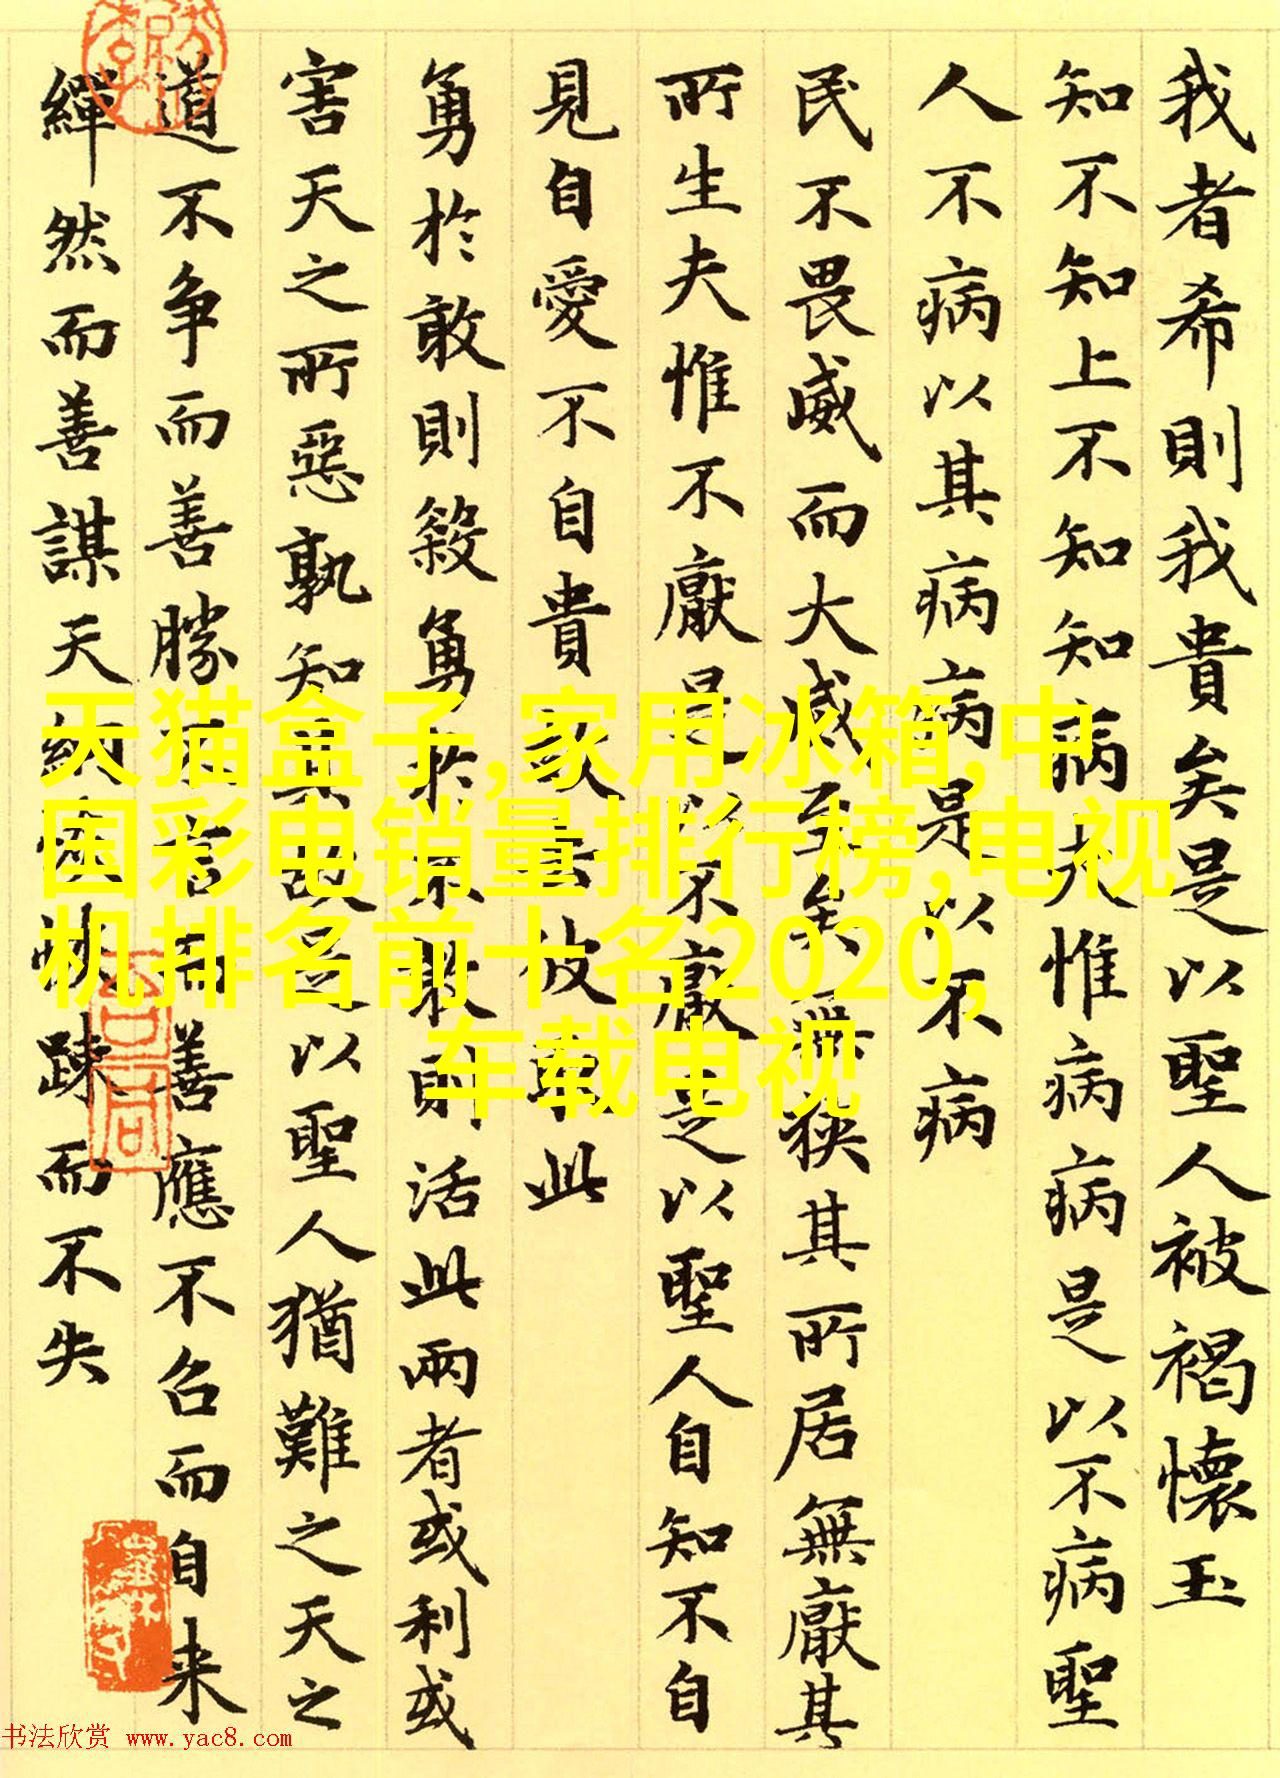 我者希則我貴矣是以聖人被褐懷玉
知不知上不知知病夫惟病病是以不病聖
人不病以其病病是以不病
民不畏威而大威至矣無狹其所居無厭其
所生夫惟不厭是以不厭是以聖人自知不自
見自愛不自貴故去彼取此
勇於敢則殺勇於不敢則活此兩者或利或
害天之所惡孰知其故是以聖人猶難之天之
道不争而善勝不言而善應不召而自来
繟然而善謀天網恢恢踈而不失
天猫盒子,家用冰箱,中
国彩电销量排行榜,电视
机排名前十名2020,
车载电视
书法欣赏 www.yac8.com